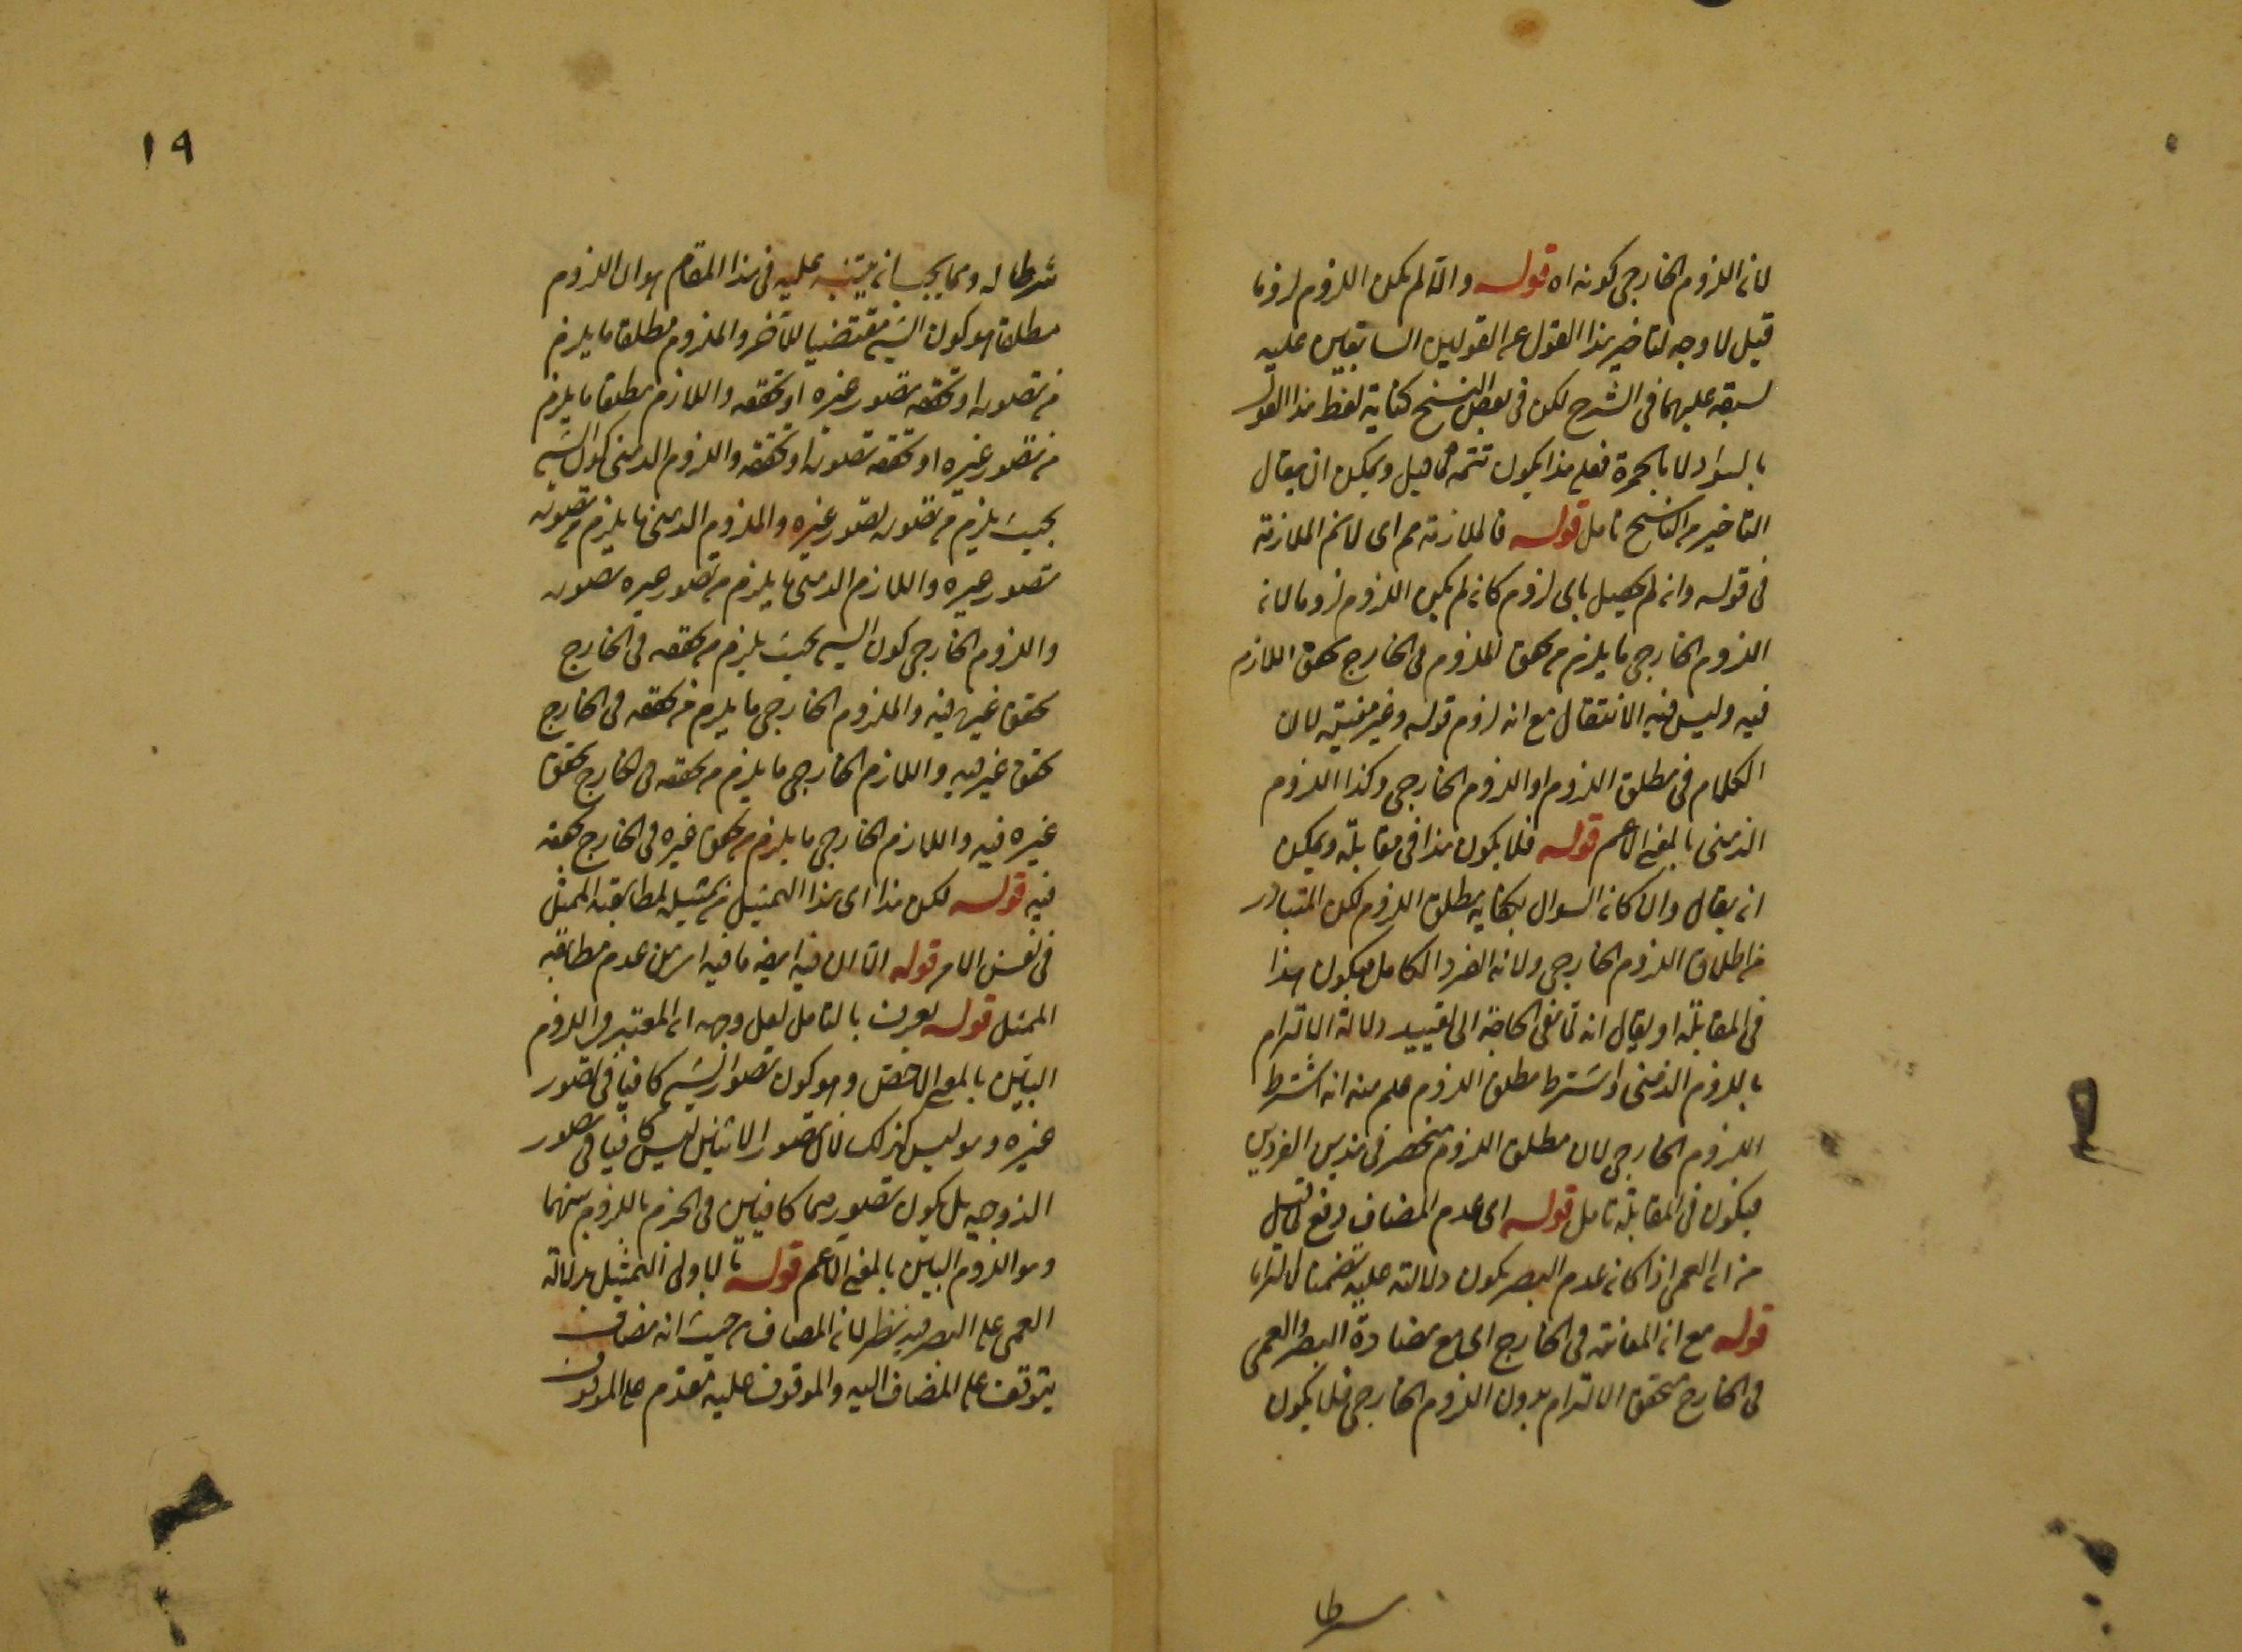 لان اللزوم الخارجى كونه اه قوله والا لم يكن اللزوم لزوما
قيل لا وجه لتاخير هذا القول عن القولين السابقين عليه
لسبقه عليهما فى الشرح لكن فى بعض النسخ كتابة لفظ هذا القول
بالسواد لا بالحمرة فعلى هذا يكون تتمة لما قيل ويمكن ان يقال
التاخير من الناسخ تامل قوله فالملازمة مم اى لانم الملازمة
فى قوله وان لم يحصل باى لزوم كان لم يكن اللزوم لزوما لان
اللزوم الخارجى ما يلزم من تحقق الملزوم فى الخارج تحقق اللازم
فيه وليس فيه الانتقال مع انه لزوم قوله وغير مفيد لان
الكلام فى مطلق اللزوم او اللزوم الخارجى وكذا اللزوم
الذهنى بالمعنى الاعم قوله فلا يكون هذا فى مقابلة ويمكن
ان يقال وان كان السوال بكفاية مطلق اللزوم لكن المتبادر
من اطلاق اللزوم الخارجى ولانه الفرد الكامل فيكون هذا
فى المقابلة او يقال انه لما نفى الحاجة الى تقييد دلالة الالتزام
باللزوم الذهنى واشترط مطلق اللزوم علم منه انه اشترط
اللزوم الخارجى لان مطلق اللزوم منحصر فى هذين الفردين
فيكون فى المقابلة تامل قوله اى عدم المضاف دفع لما قيل
من ان العمى اذا كان عدم البصر يكون دلالته عليه تضمنا لا التزاما
قوله مع ان المعاندة فى الخارج اى مع مضادة البصر والعمى
فى الخارج تحقق الالتزام بدون اللزوم الخارجى فلا يكون
شرطا
١٩
شرطا له ومما يجب ان يتنبه عليه فى هذا المقام هو ان اللزوم
مطلقا هو كون الشيء مقتضيا للآخر والملزوم مطلقا ما يلزم
من تصوره او تحققه تصور غيره او تحققه واللازم مطلقا ما يلزم
من تصور غيره او تحققه تصوره او تحققه واللزوم الذهنى كون الشيء
بحيث يلزم من تصوره تصور غيره والملزوم الذهنى ما يلزم من تصوره
تصور غيره واللازم الذهنى ما يلزم من تصور غيره تصوره
واللزوم الخارجى كون الشيء بحيث يلزم من تحققه فى الخارج
تحقق غيره فيه والملزوم الخارجى ما يلزم من تحققه فى الخارج
تحقق غيره فيه واللازم الخارجى ما يلزم من تحققه فى الخارج تحقق
غيره فيه واللازم الخارجى ما يلزم من تحقق غيره فى الخارج تحققه
فيه قوله لكن هذا اى هذا التمثيل لمطابقة الممثل
فى نفس الامر قوله الا ان فيه ايضا ما فيه من عدم مطابقة
الممثل قوله يعرف بالتامل لعل وجهه ان المعتبر هو اللزوم
البين بالمعنى الاخص وهو كون تصور الشيء كافيا فى تصور
غيره وهو ليس كذلك لان تصور الاثنين ليس كافيا فى تصور
الزوجية بل يكون تصورهما كافيين فى الجزم باللزوم بينهما
وهو اللزوم البين بالمعنى الاعم قوله فالاولى التمثيل بدلالة
العمى على البصر فيه نظر لان المضاف من حيث انه مضاف
يتوقف على المضاف اليه والموقوف عليه مقدم على الموقوف